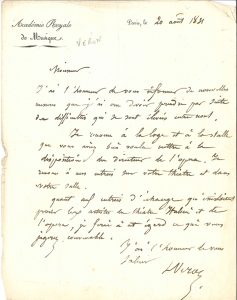 Académie Royale
de Musique.
Paris, le 20 août 1831
VERON
Monsieur
J'ai l'honneur de vous informer de nouvelles
mesures que j'ai cru devoir prendre par suite
des difficultés qui se sont élevées entre nous.
Je renonce à la loge et à la stalle
que vous aviez bien voulu mettre à la
disposition du directeur de l'opéra. Je
renonce à mes entrées sur votre théâtre et dans
votre salle.
quant aux entrées d'échange qui
pour les artistes du théâtre Italien et de
l'opéra, je ferai à cet égard ce que vous
jugerez convenable.
J'ai l'honneur de vous
saluer
Véron